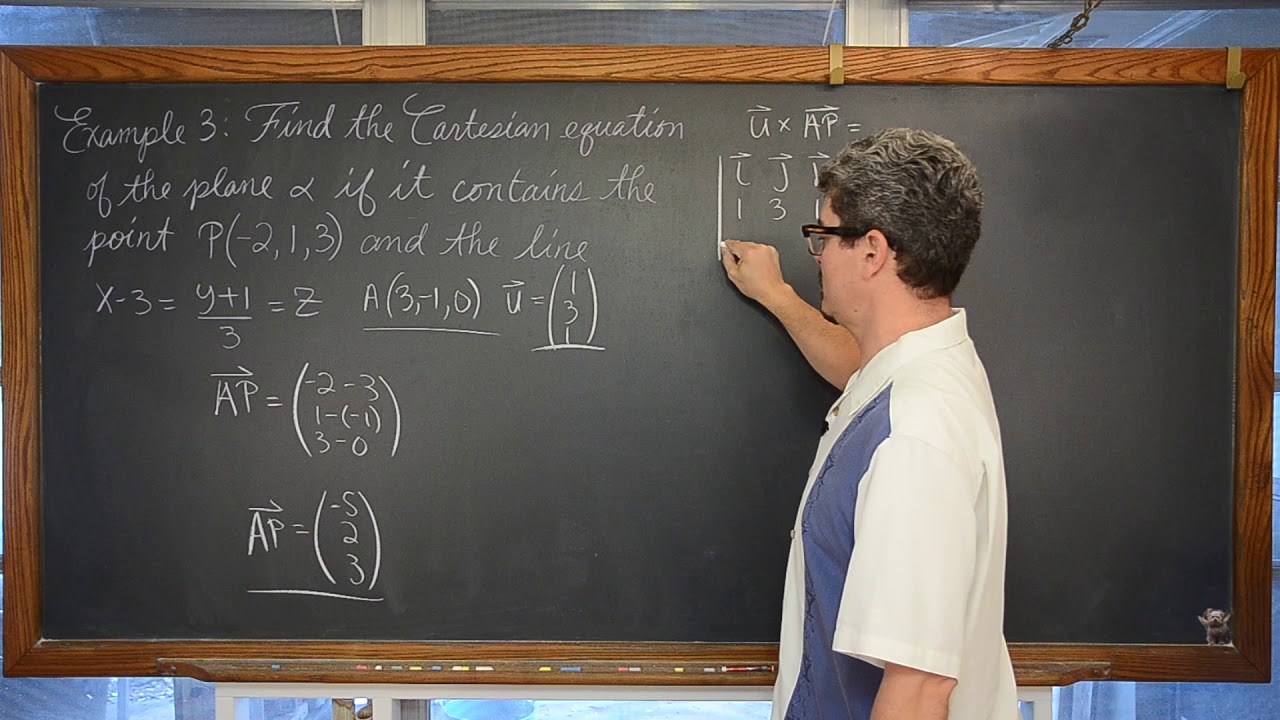 Example 3: Find the Cartesian equation
of the plane α if it contains the
point P(-2, 1, 3) and the line
x-3 = y+1/3 = z A(3,-1,0) u⃗ = (1 3 1)
AP⃗ = (-2-3
1-(-1)
3-0)
AP⃗ = (-5
2
3)
u⃗ × AP⃗ =
i⃗ j⃗
1 3 1